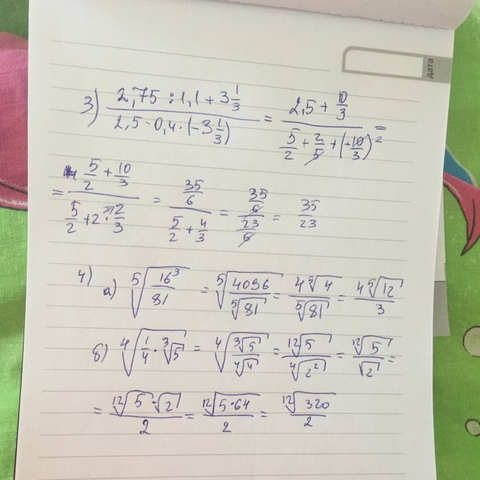 дата
3) (2,75 : 1,1 + 3 1/3) / (2,5 - 0,4 · (-3 1/3)) = (2,5 + 10/3) / (5/2 + 2/5 + (-10/3)²) =
= (5/2 + 10/3) / (5/2 + 2 · 2/3) = (35/6) / (5/2 + 4/3) = (35/6) / (23/6) = 35/23
4) а) ⁵√(16³/81) = ⁵√4096 / ⁵√81 = 4 ⁵√4 / ⁵√81 = 4 ⁵√12 / 3
б) ⁴√(1/4 · ³√5) = ⁴√(³√5) / ⁴√4 = ¹²√5 / ⁴√(2²) = ¹²√5 / √2 =
= ¹²√5 · √2 / 2 = ¹²√(5 · 64) / 2 = ¹²√320 / 2